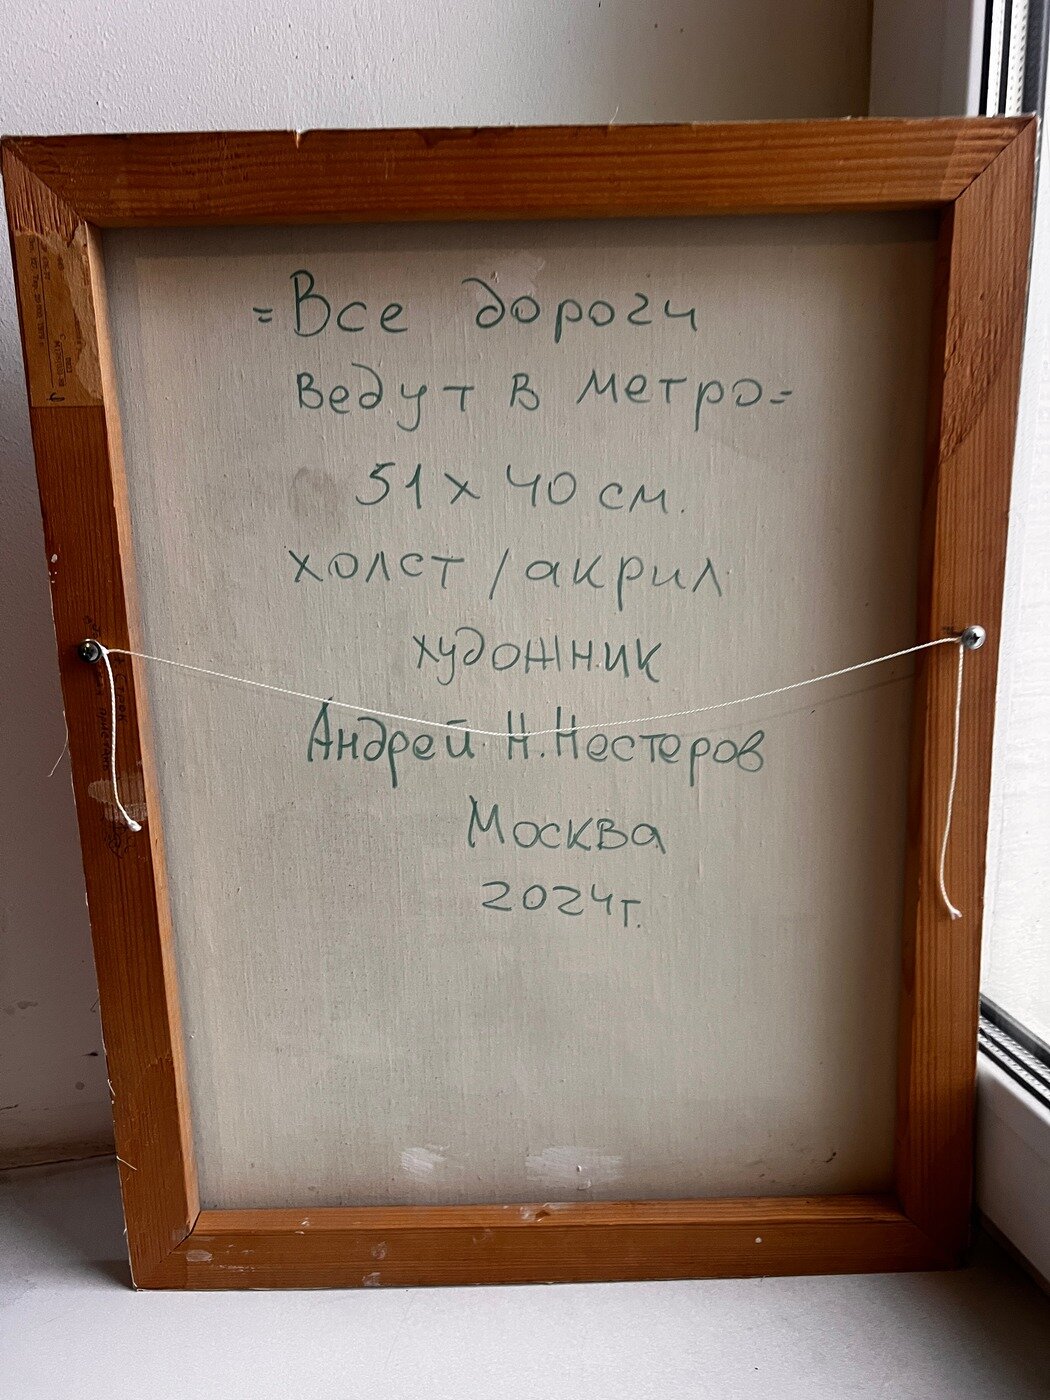 =Все дороги
ведут в метро=
51 х 40 см.
холст / акрил
художник
Андрей Н. Нестеров
Москва
2024г.